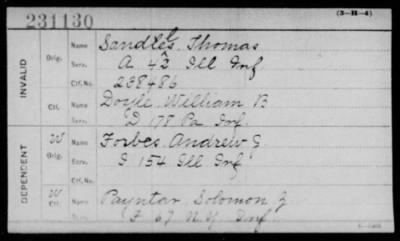 231130
(3-H-4)
INVALID
Orig.
Name Sandles, Thomas
Serv. A 42 Ill Inf
Ctf. No. 238486
Ctf.
Name Doyle William B
Serv. D 178 Pa Inf.
DEPENDENT
W
Orig.
Name Forbes Andrew G
Serv. I 154 Ill Inf
Ctf. No.
W
Ctf.
Name Payntar Solomon Z
Serv. F 67 N.Y. Inf